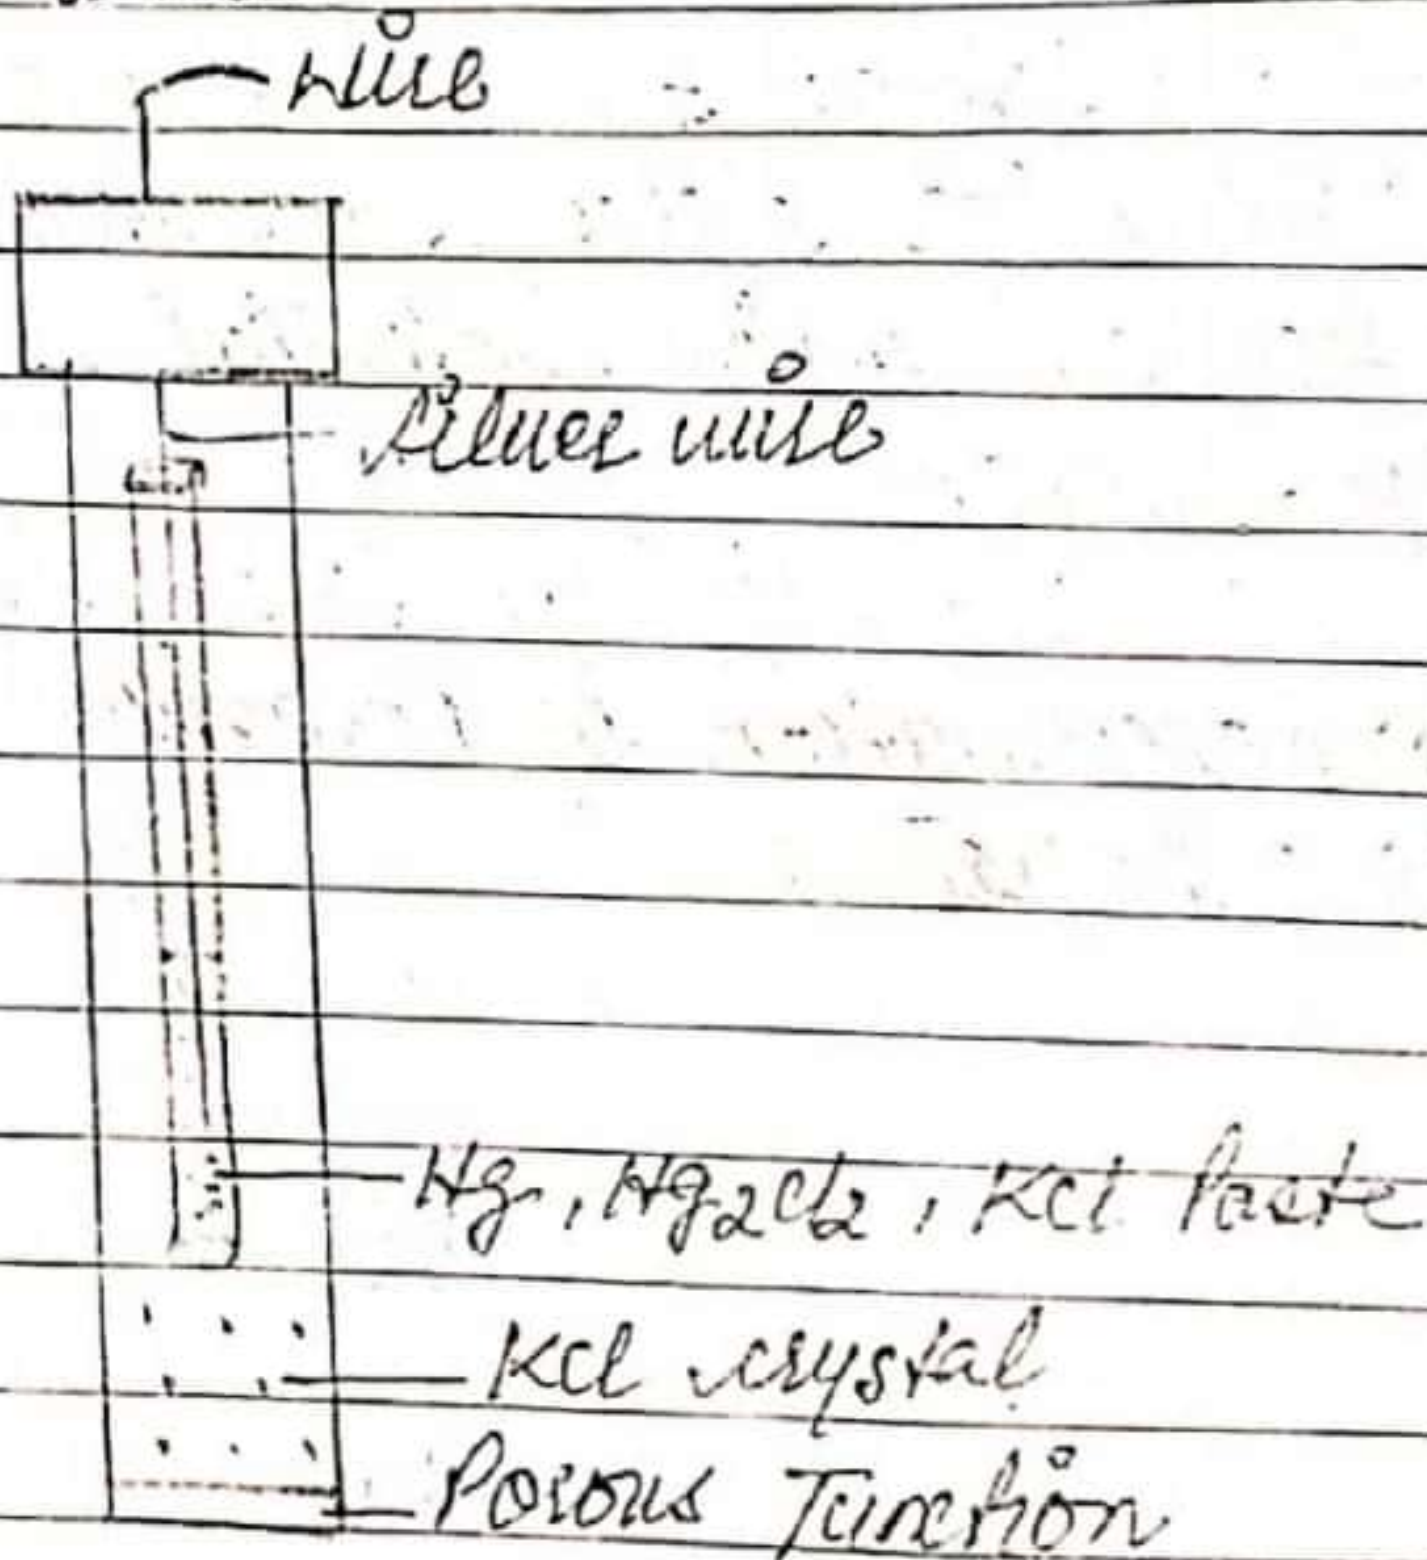 wire
silver wire
Hg, Hg2Cl2, KCl Paste
KCl crystal
Porous Junction